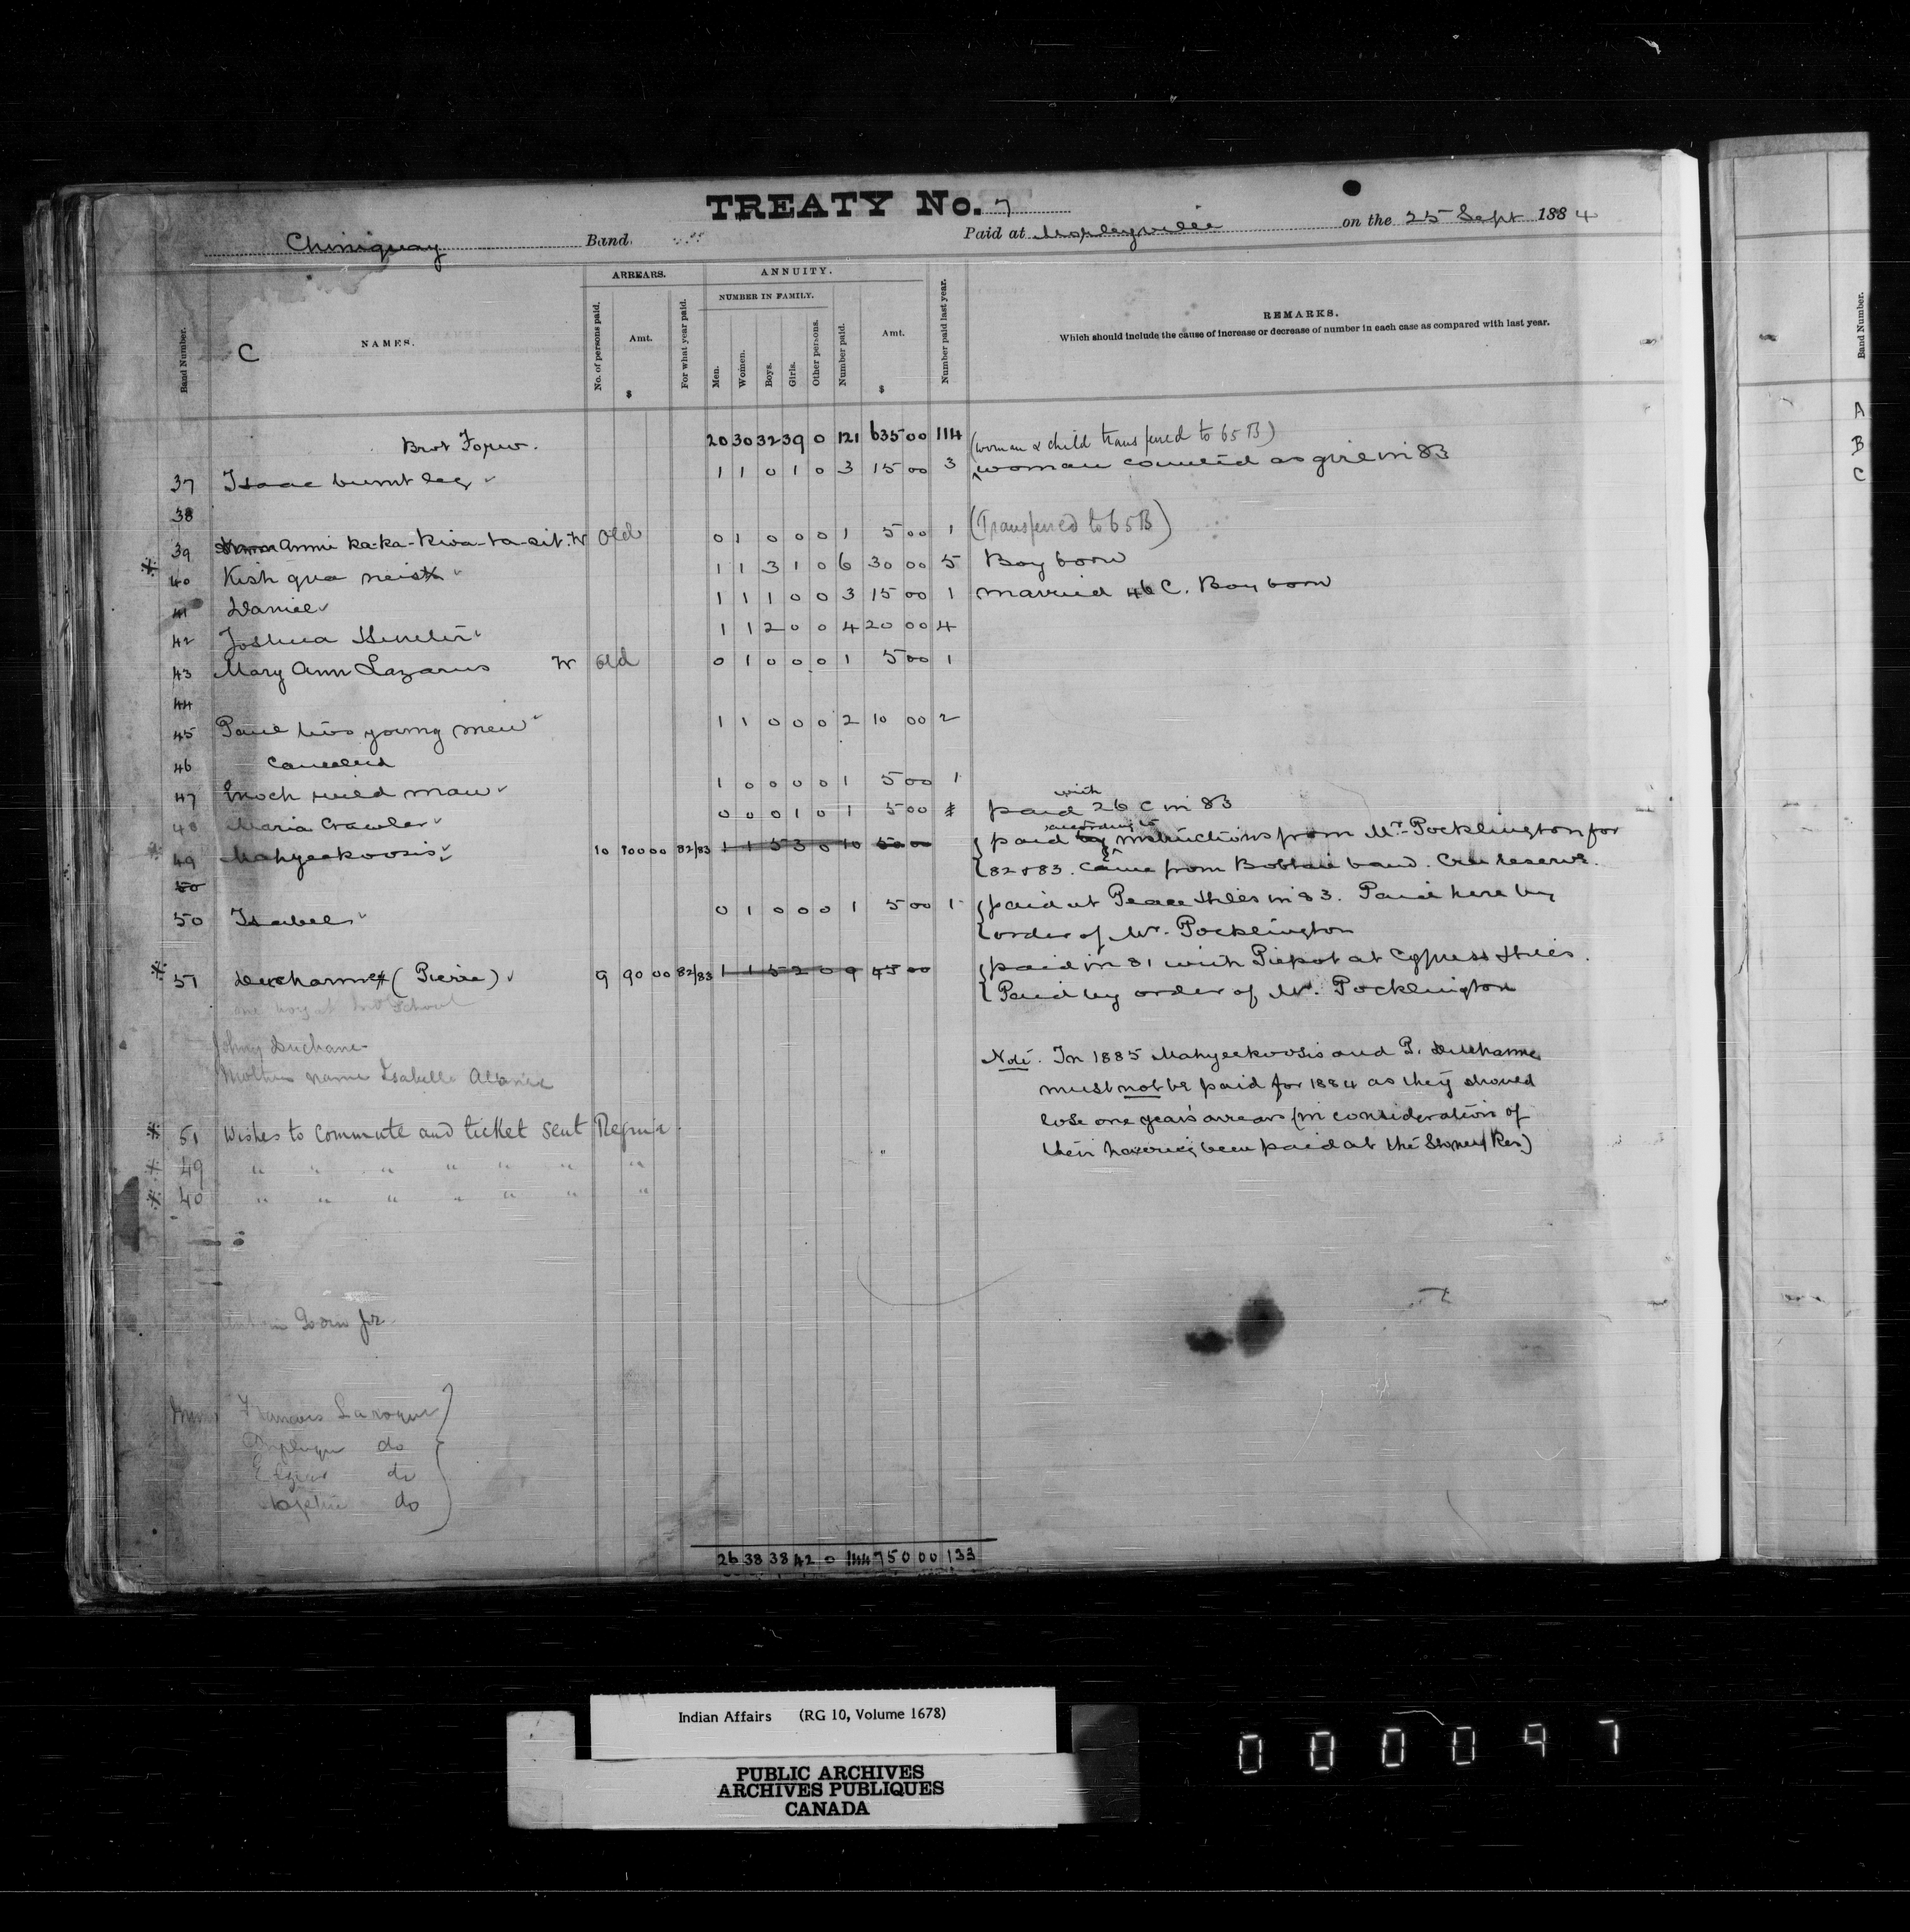 TREATY No. 7
Chiniquay Band. Paid at Morleyville on the 25 Sept 1884
Band Number.
C
NAMES.
ARREARS.
No. of persons paid.
Amt.
$
For what year paid.
ANNUITY.
NUMBER IN FAMILY.
Men.
Women.
Boys.
Girls.
Other persons.
Number paid.
Amt.
$
Number paid last year.
REMARKS.
Which should include the cause of increase or decrease of number in each case as compared with last year.
Band Number.
A
B
C
Brot Forw. 20 30 32 39 0 121 635 00 114
(woman & child transferred to 65 B)
37 Isaac burnt leg 1 1 0 1 0 3 15 00 3 woman counted as girl in 83
38
39 Annie Ka-ka-kiwa-ta-sit. W Old 0 1 0 0 0 1 5 00 1 (Transferred to 65 B)
* 40 Kish qua neist 1 1 3 1 0 6 30 00 5 Boy born
41 Daniel 1 1 1 0 0 3 15 00 1 married 46 C. Boy born
42 Joshua Hunter 1 1 2 0 0 4 20 00 4
43 Mary Ann Lazarus W Old 0 1 0 0 0 1 5 00 1
44
45 Paul two young men 1 1 0 0 0 2 10 00 2
46 Cancelled
47 Enoch wild man 1 0 0 0 0 1 5 00 1
48 Maria Crawler 0 0 0 1 0 1 5 00 paid with 26 C in 83
* 49 Mahyeekoosis 10 100 00 82/83 1 1 5 3 0 10 50 00 paid by according to instructions from Mr. Pocklington for
82 & 83. Came from Bobtail band. Cree reserve.
50
50 Isabel 0 1 0 0 0 1 5 00 1 paid at Peace Hills in 83. Paid here by
order of Mr. Pocklington
* 51 Ducharme (Pierre) 9 90 00 82/83 1 1 5 2 0 9 45 00 paid in 81 with Piepot at Cypress Hills.
Paid by order of Mr. Pocklington
one boy at School
Johny Duchane
Mother name Isabelle
Note. In 1885 Mahyeekoosis and P. Ducharme
must not be paid for 1884 as they should
lose one year's arrears (in consideration of
their having been paid at the Stoney Res.)
* 51 Wishes to commute and ticket sent Regina.
* 49 " " " " " " "
* 40 " " " " " " "
Jr.
Francois Laroque
do
do
do
26 38 38 42 0 144 750 00 133
Indian Affairs (RG 10, Volume 1678)
PUBLIC ARCHIVES
ARCHIVES PUBLIQUES
CANADA
000097